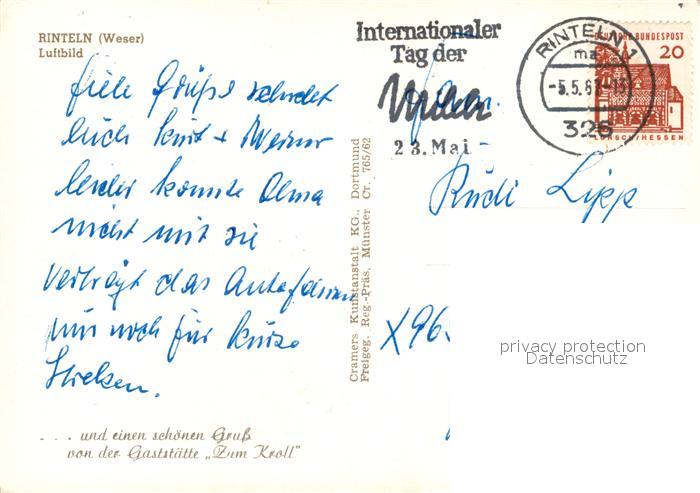 RINTELN (Weser)
Luftbild
Internationaler
Tag der
23. Mai
RINTELN 1
mz
-5.5.6 -13
326
DEUTSCHE BUNDESPOST
20
LORSCH/HESSEN
Viele Grüße sendet
Euch Kurt + Werner
leider konnte Oma
nicht mit sie
verträgt das Autofahren
nur noch für kurze
Strecken.
Rudi Lipp
Cramers Kunstanstalt KG., Dortmund
Freigeg. Reg.-Präs. Münster Cr. 765/62
privacy protection
Datenschutz
. . . und einen schönen Gruß
von der Gaststätte „Zum Kroll"